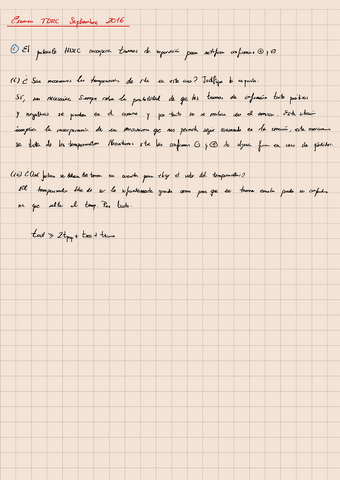 Examen TDRC Septiembre 2016
① El protocolo HDLC incorpora tramas de supervisión para notificar confirmas ⊕ y ⊖
(i.) ¿Son necesarios los temporizadores de rtx en este caso? Justifique la respuesta.
Sí, son necesarios. Siempre existe la probabilidad de que las tramas de confirmación tanto positivas
y negativas se pierdan en el camino y por tanto no se reciban en el emisor. Esta situación
implica la incorporación de un mecanismo que nos permita seguir avanzando en la conexión, este mecanismo
se trata de los temporizadores. Necesitamos rtx las confirmas ⊖ y ⊕ de alguna forma en caso de pérdida.
(ii) ¿Qué factores se deben de tener en cuenta para elegir el valor del temporizador?
El temporizador ha de ser lo suficientemente grande como para que su trama enviada pueda ser confirmada
sin que salte el temp. Por tanto.
tout ⩾ 2tprop + tack + ttrama